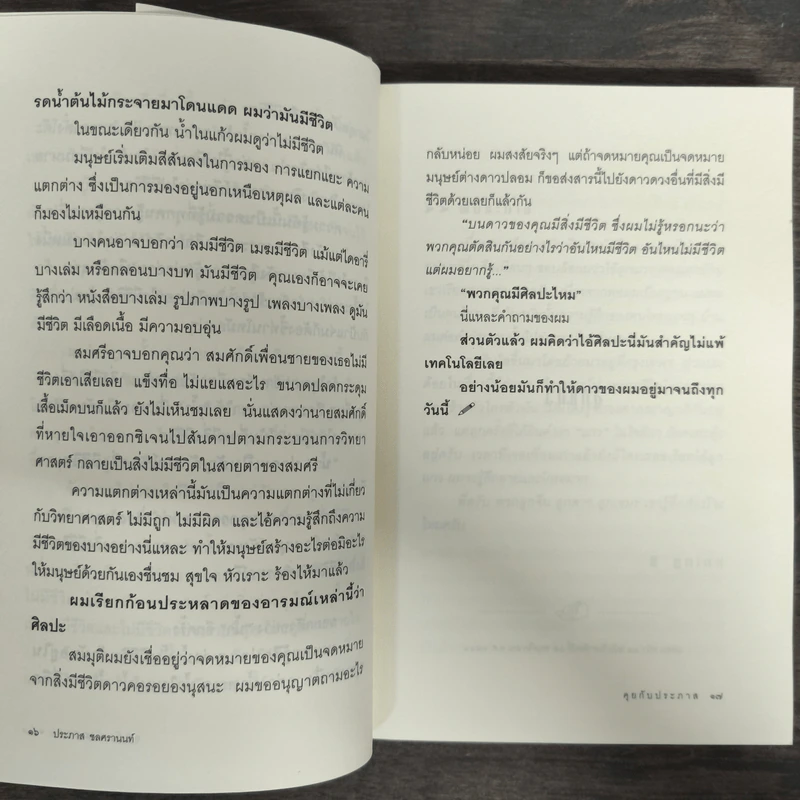 รดน้ำต้นไม้กระจายมาโดนแดด ผมว่ามันมีชีวิต
ในขณะเดียวกัน น้ำในแก้วผมดูว่าไม่มีชีวิต
มนุษย์เริ่มเติมสีสันลงในการมอง การแยกแยะ ความ
แตกต่าง ซึ่งเป็นการมองอยู่นอกเหนือเหตุผล และแต่ละคน
ก็มองไม่เหมือนกัน
บางคนอาจบอกว่า ลมมีชีวิต เมฆมีชีวิต แม้แต่ไดอารี่
บางเล่ม หรือกลอนบางบท มันมีชีวิต คุณเองก็อาจจะเคย
รู้สึกว่า หนังสือบางเล่ม รูปภาพบางรูป เพลงบางเพลง ดูมัน
มีชีวิต มีเลือดเนื้อ มีความอบอุ่น
สมศรีอาจบอกคุณว่า สมศักดิ์เพื่อนชายของเธอไม่มี
ชีวิตเอาเสียเลย แข็งทื่อ ไม่แยแสอะไร ขนาดปลดกระดุม
เสื้อเม็ดบนก็แล้ว ยังไม่เห็นชมเลย นั่นแสดงว่านายสมศักดิ์
ที่หายใจเอาออกซิเจนไปสันดาปตามกระบวนการวิทยา
ศาสตร์ กลายเป็นสิ่งไม่มีชีวิตในสายตาของสมศรี
ความแตกต่างเหล่านี้มันเป็นความแตกต่างที่ไม่เกี่ยว
กับวิทยาศาสตร์ ไม่มีถูก ไม่มีผิด และไอ้ความรู้สึกถึงความ
มีชีวิตของบางอย่างนี่แหละ ทำให้มนุษย์สร้างอะไรต่อมิอะไร
ให้มนุษย์ด้วยกันเองชื่นชม สุขใจ หัวเราะ ร้องไห้มาแล้ว
ผมเรียกก้อนประหลาดของอารมณ์เหล่านี้ว่า
ศิลปะ
สมมุติผมยังเชื่ออยู่ว่าจดหมายของคุณเป็นจดหมาย
จากสิ่งมีชีวิตดาวคอรอยองนุสนะ ผมขออนุญาตถามอะไร
๑๖ ประภาส ชลศรานนท์
กลับหน่อย ผมสงสัยจริงๆ แต่ถ้าจดหมายคุณเป็นจดหมาย
มนุษย์ต่างดาวปลอม ก็ขอส่งสารนี้ไปยังดาวดวงอื่นที่มีสิ่งมี
ชีวิตด้วยเลยก็แล้วกัน
"บนดาวของคุณมีสิ่งมีชีวิต ซึ่งผมไม่รู้หรอกนะว่า
พวกคุณตัดสินกันอย่างไรว่าอันไหนมีชีวิต อันไหนไม่มีชีวิต
แต่ผมอยากรู้..."
"พวกคุณมีศิลปะไหม"
นี่แหละคำถามของผม
ส่วนตัวแล้ว ผมคิดว่าไอ้ศิลปะนี่มันสำคัญไม่แพ้
เทคโนโลยีเลย
อย่างน้อยมันก็ทำให้ดาวของผมอยู่มาจนถึงทุก
วันนี้
คุยกับประภาส ๑๗